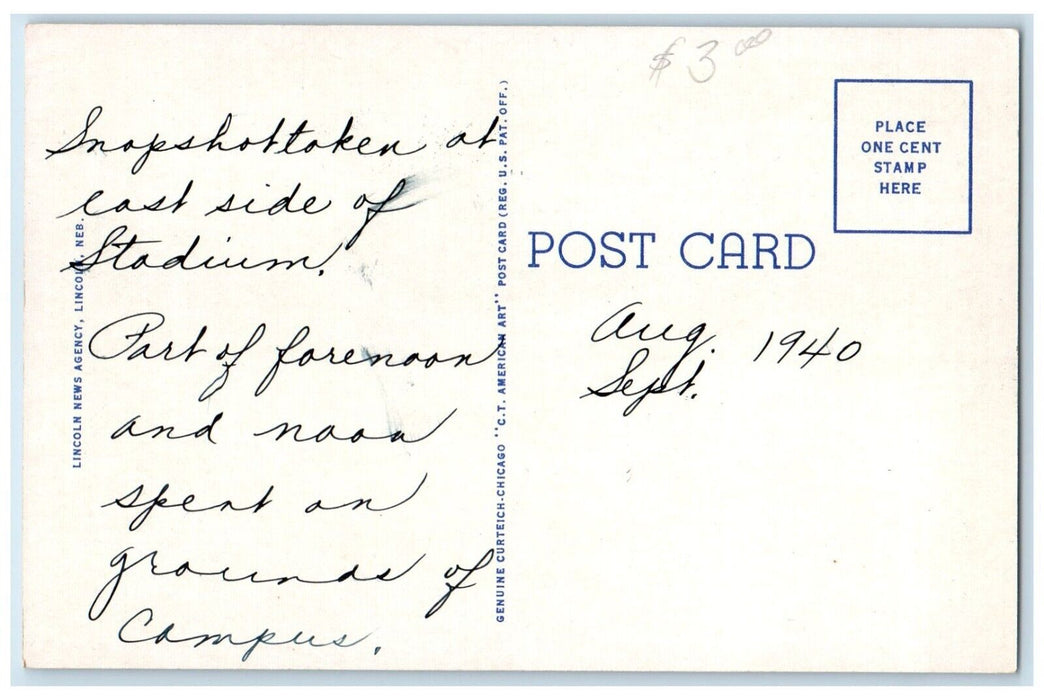 $3.00
Snapshot taken at
east side of
Stadium.
Part of forenoon
and noon
spent on
grounds of
Campus.
LINCOLN NEWS AGENCY, LINCOLN, NEB.
GENUINE CURTEICH-CHICAGO "C.T. AMERICAN ART" POST CARD (REG. U.S. PAT. OFF.)
PLACE
ONE CENT
STAMP
HERE
POST CARD
Aug. 1940
Sept.